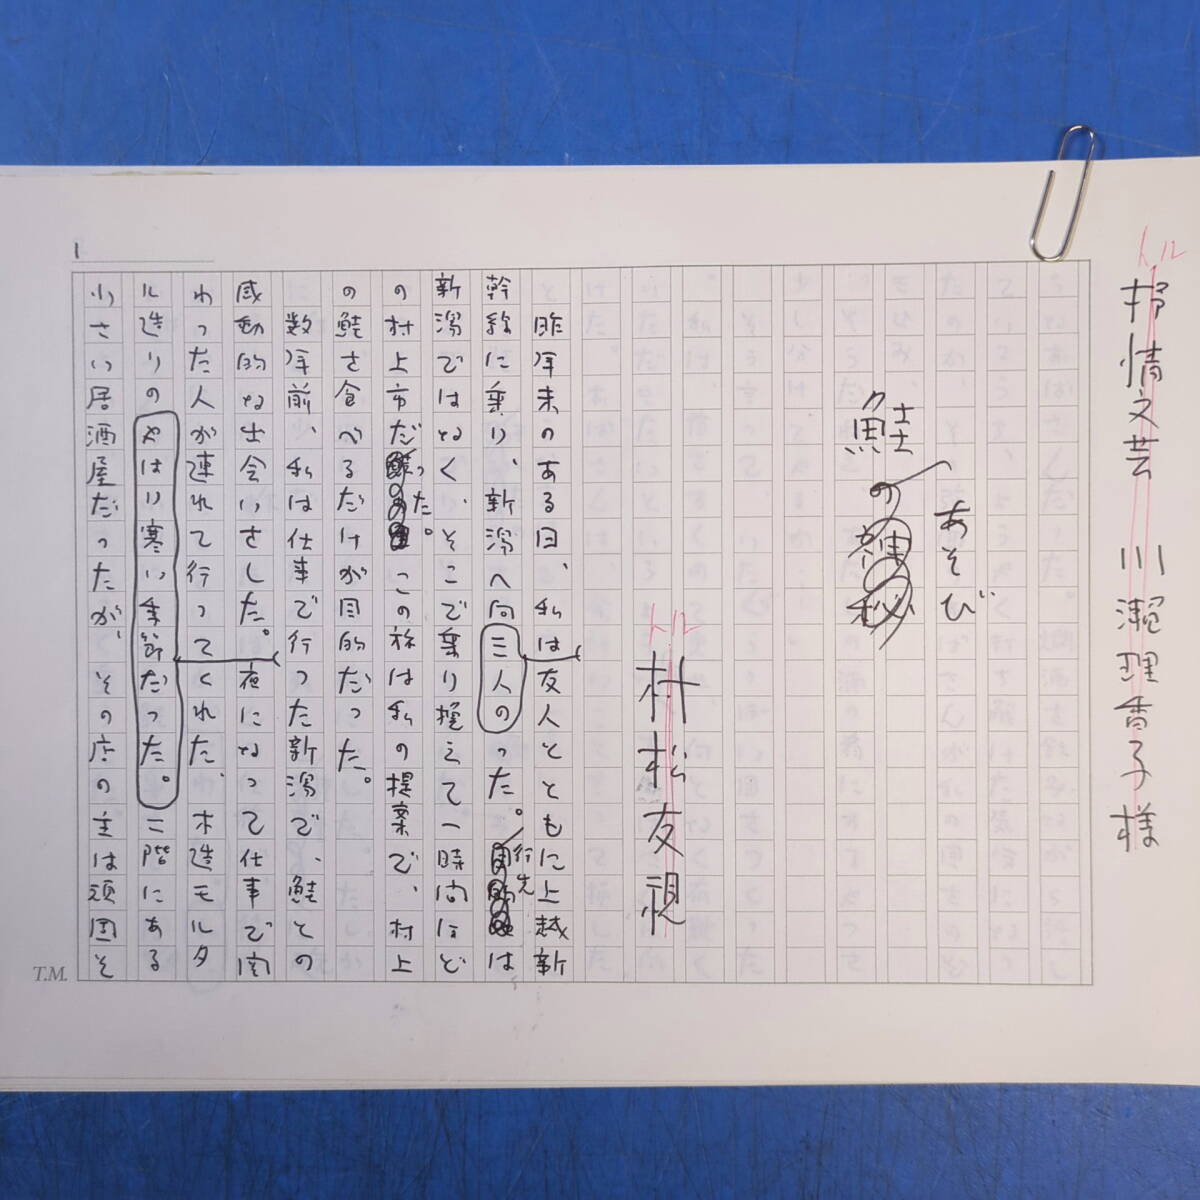 トル
抒情文芸 川瀬理香子様
あそび
鮭の
トル
村松友視
1
昨年末のある日、私は友人とともに上越新
幹線に乗り、新潟へ向三人のった。行先は
新潟ではなく、そこで乗り換えて一時間ほど
の村上市だった。この旅は私の提案で、村上
の鮭を食べるだけが目的だった。
数年前、私は仕事で行った新潟で、鮭との
感動的な出会いをした。夜になって仕事で関
わった人が連れて行ってくれた、木造モルタ
ル造りのやはり寒い季節だった。二階にある
小さい居酒屋だったが、その店の主は頑固そ
T.M.